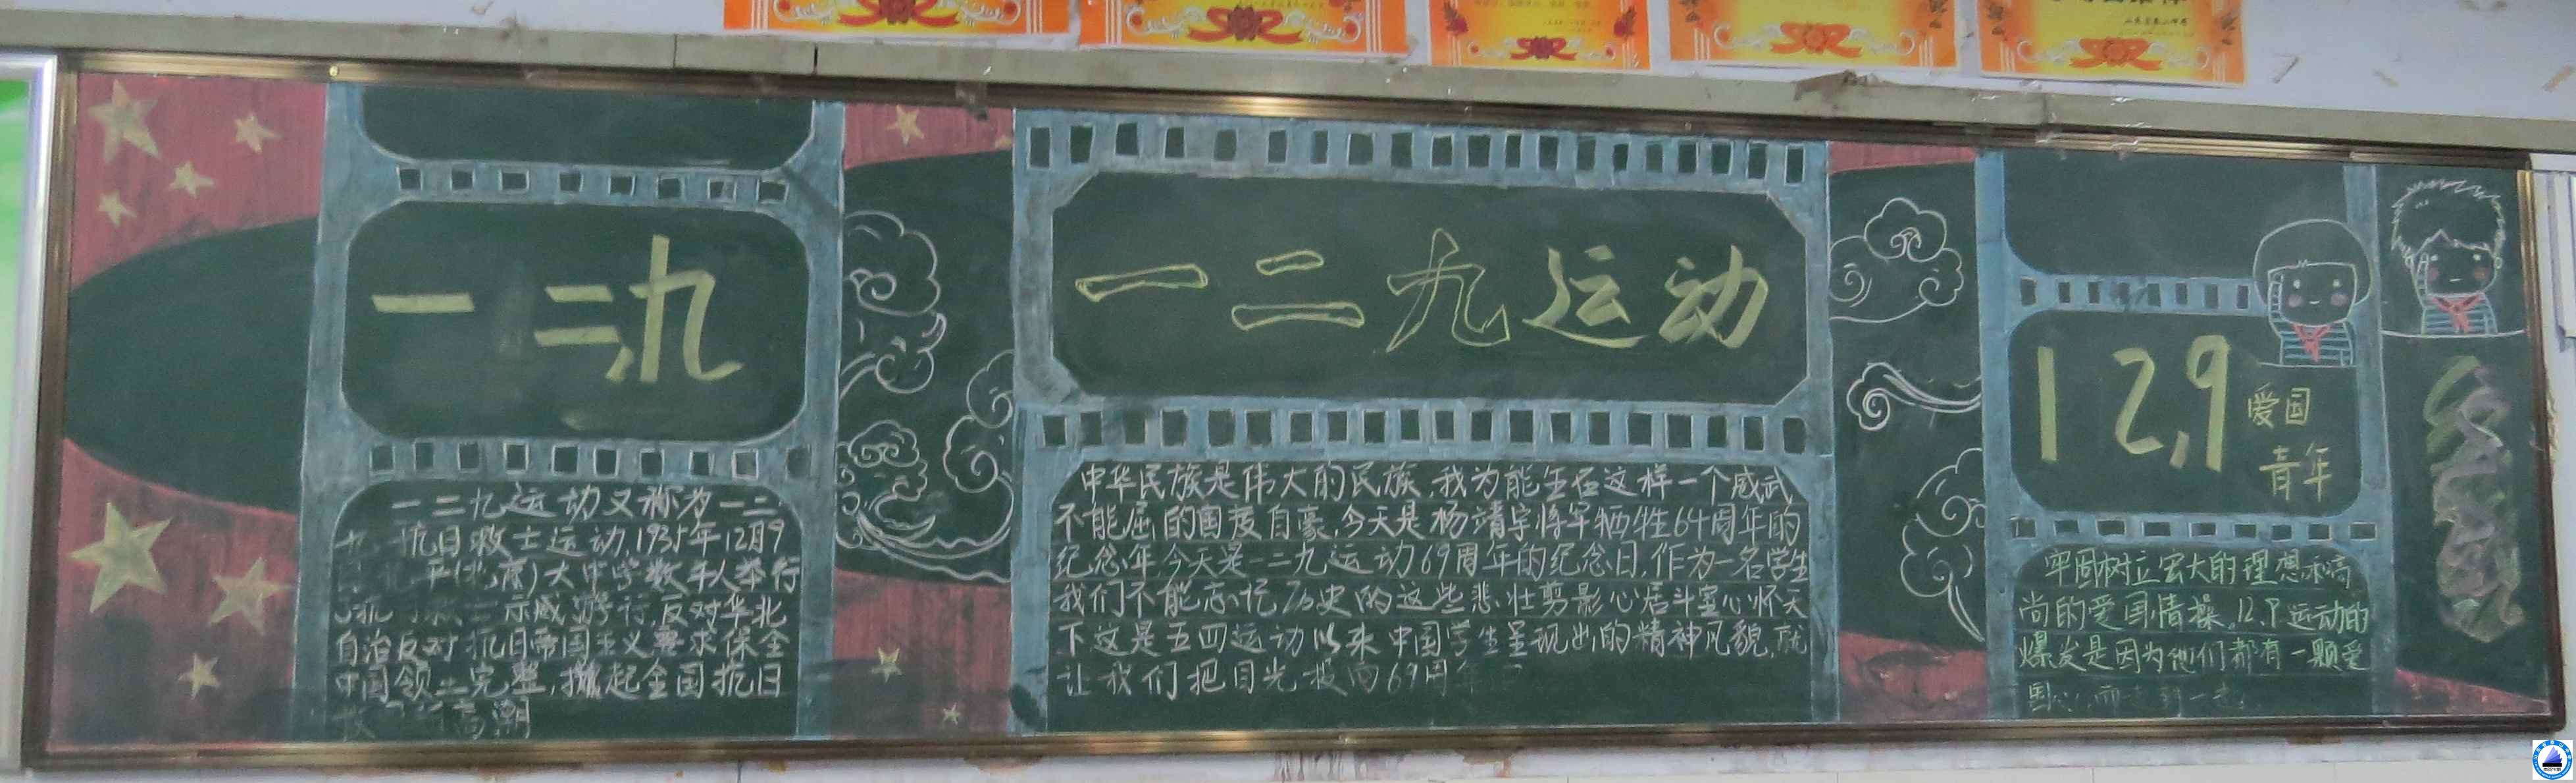 一二九
一二九运动又称为一二
九 抗日救土运动,1935年12月9
平(北京)大中学数千人举行
了抗 示威游行,反对华北
自治反对抗日帝国主义要求保全
中国领土完整,掀起全国抗日
高潮
一二九运动
中华民族是伟大的民族,我为能生在这样一个威武
不能屈的国度自豪,今天是杨靖宇将军牺牲64周年的
纪念年,今天是一二九运动69周年的纪念日,作为一名学生
我们不能忘记历史的这些悲壮剪影心居斗室心怀天
下这是五四运动以来中国学生呈现出的精神风貌,就
让我们把目光投向69周年
12,9
爱国
青年
牢固树立宏大的理想和高
尚的爱国情操。12.9运动的
爆发是因为他们都有一颗爱
国心,而走到一起。